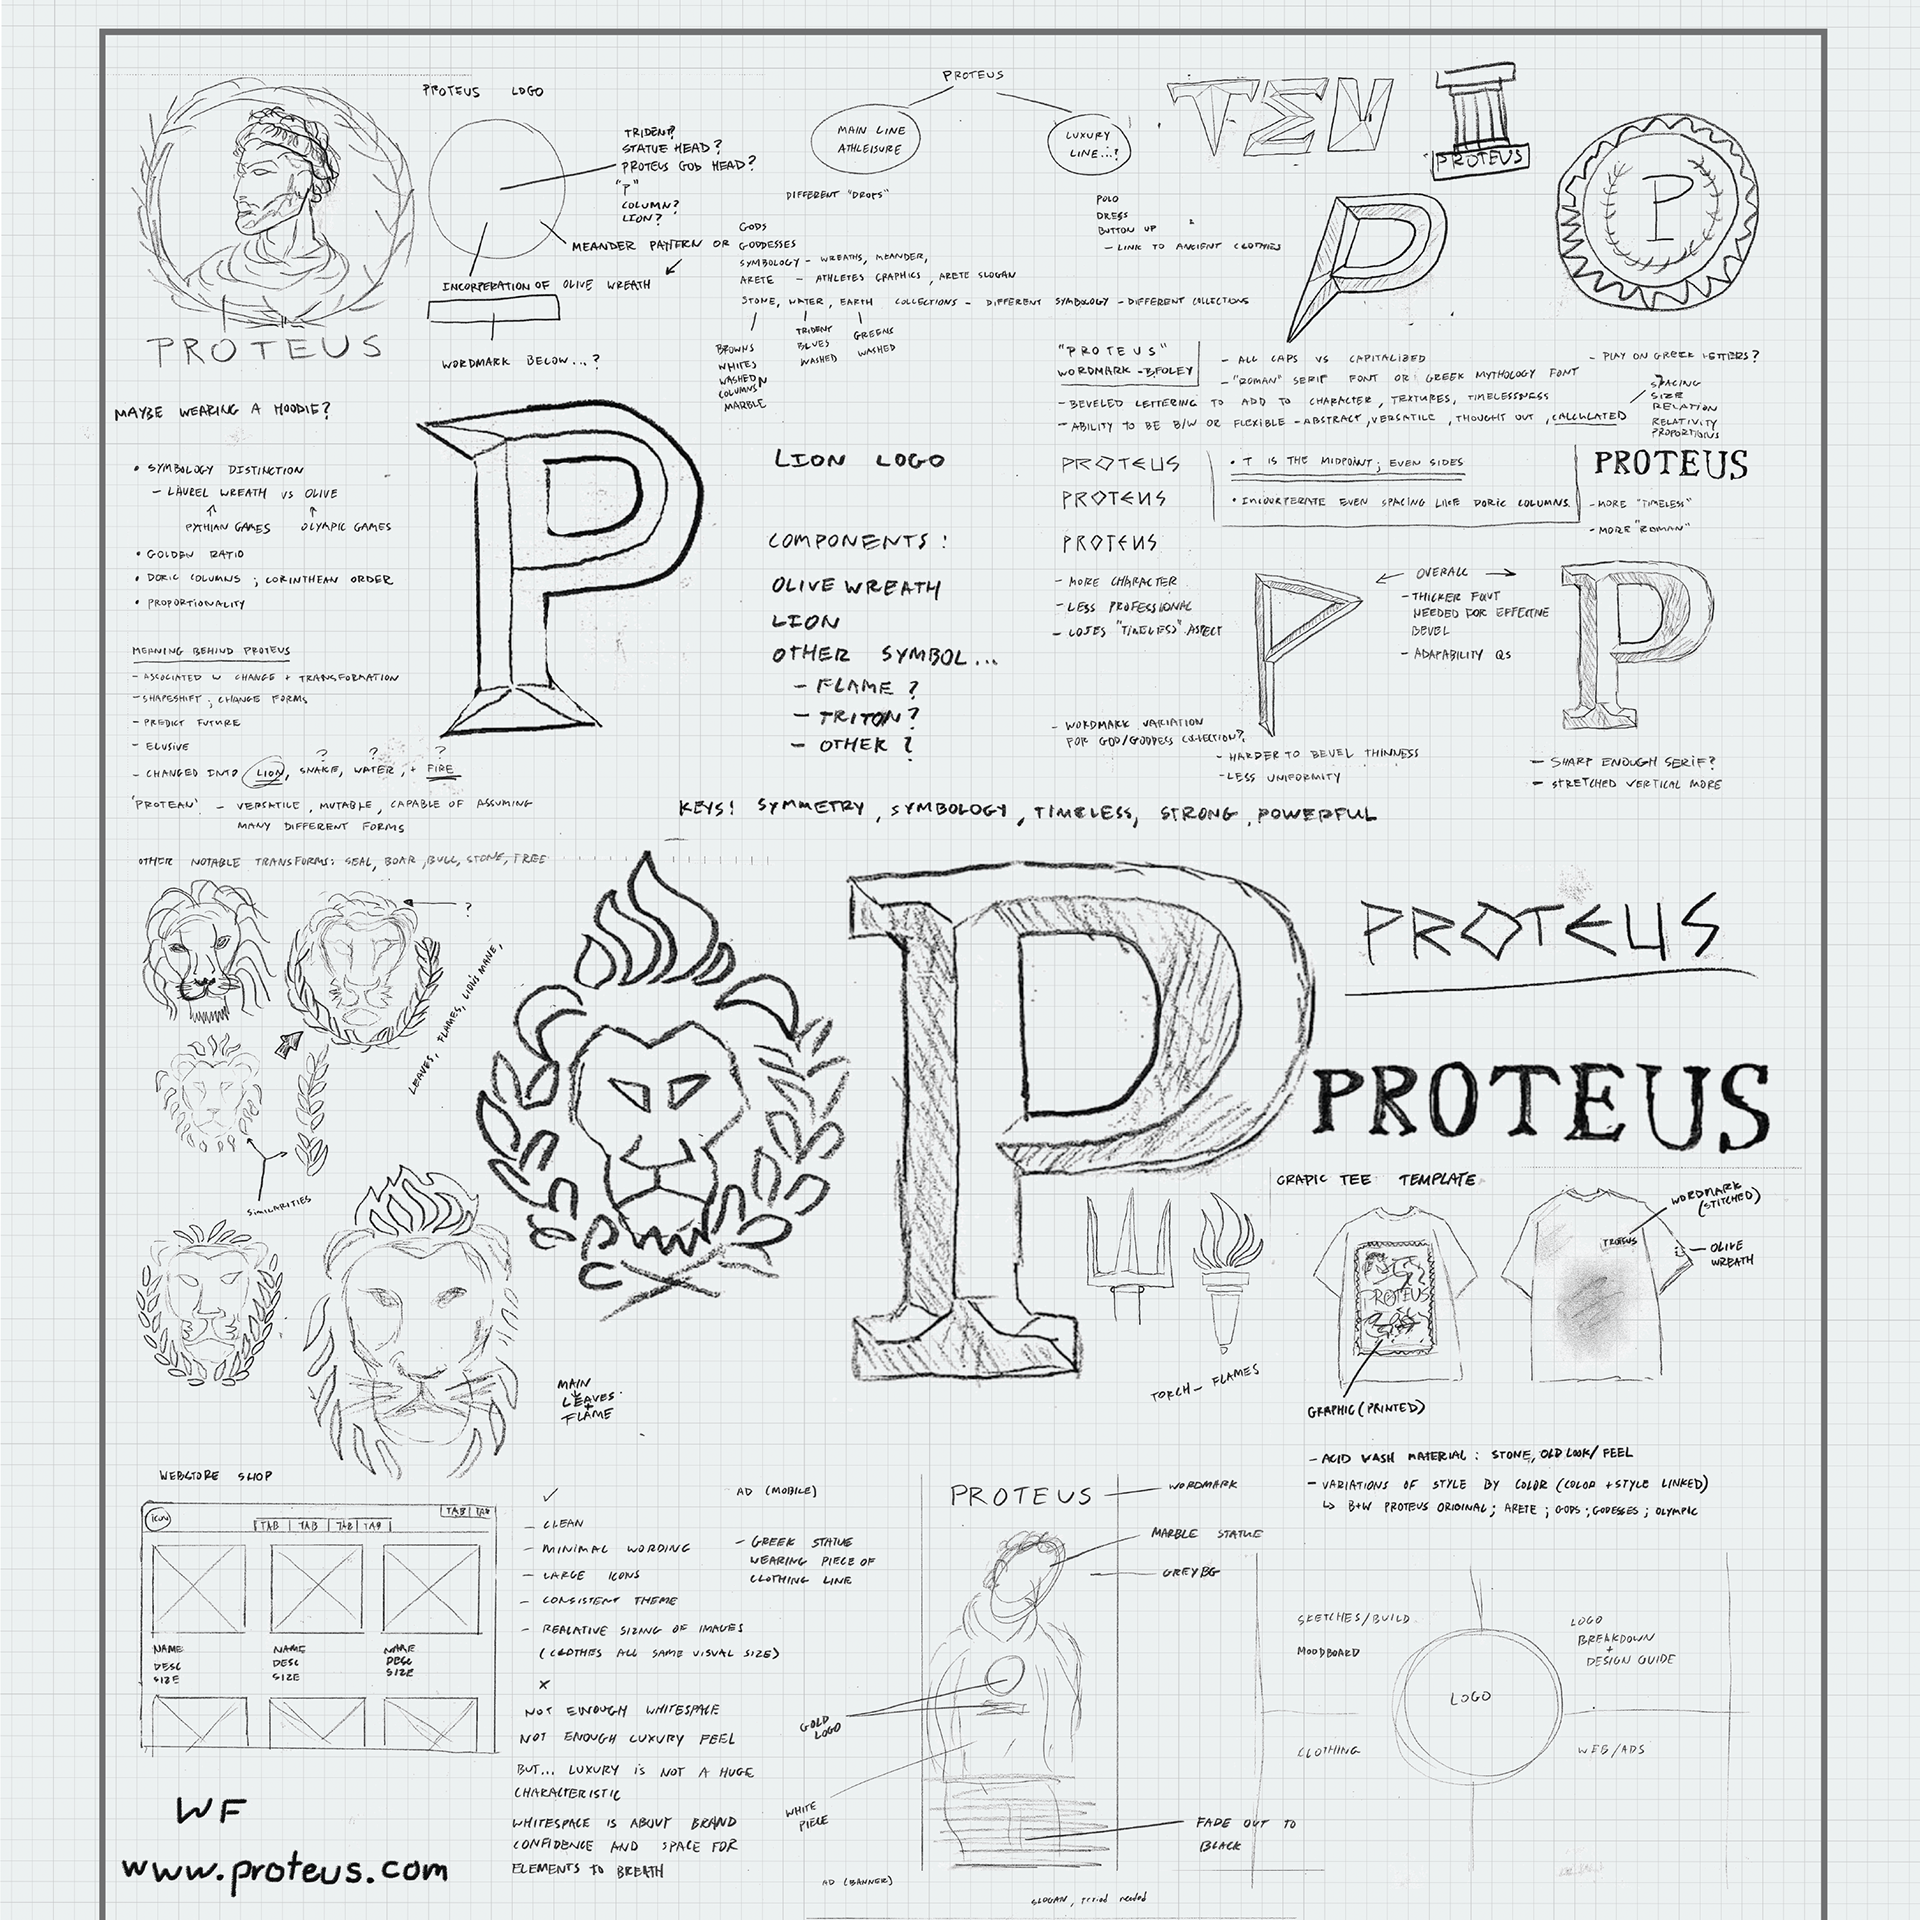 PROTEUS LOGO
TRIDENT?
STATUE HEAD?
PROTEUS GOD HEAD?
"P"
COLUMN?
LION?
MEANDER PATTERN OR
INCORPERATION OF OLIVE WREATH
WORDMARK BELOW...?
PROTEUS
MAYBE WEARING A HOODIE?
PROTEUS
MAIN LINE
ATHLEISURE
LUXURY
LINE...?
DIFFERENT "DROPS"
GODS
GODDESSES
SYMBOLOGY - WREATHS, MEANDER,
ARETE - ATHLETES GRAPHICS, ARETE SLOGAN
STONE, WATER, EARTH COLLECTIONS - DIFFERENT SYMBOLOGY - DIFFERENT COLLECTIONS
BROWNS
WHITES
WASHED
COLUMNS
MARBLE
TRIDENT
BLUES
WASHED
GREENS
WASHED
POLO
DRESS
BUTTON UP
- LINK TO ANCIENT CLOTHES
PROTEUS
P
"PROTEUS"
WORDMARK - B,FOLEY
- ALL CAPS VS CAPITALIZED
- "ROMAN" SERIF FONT OR GREEK MYTHOLOGY FONT
- BEVELED LETTERING TO ADD TO CHARACTER, TEXTURES, TIMELESSNESS
- ABILITY TO BE B/W OR FLEXIBLE - ABSTRACT, VERSATILE, THOUGHT OUT, CALCULATED
- PLAY ON GREEK LETTERS?
SPACING
SIZE
RELATION
RELATIVITY
PROPORTIONS
• SYMBOLOGY DISTINCTION
- LAUREL WREATH VS OLIVE
PYTHIAN GAMES OLYMPIC GAMES
• GOLDEN RATIO
• DORIC COLUMNS ; CORINTHEAN ORDER
• PROPORTIONALITY
P
LION LOGO
COMPONENTS:
OLIVE WREATH
LION
OTHER SYMBOL...
- FLAME?
- TRITON?
- OTHER?
PROTEUS
PROTEUS
PROTEUS
• T IS THE MIDPOINT; EVEN SIDES
• INCOURPERATE EVEN SPACING LIKE DORIC COLUMNS.
PROTEUS
- MORE "TIMELESS"
- MORE "ROMAN"
- MORE CHARACTER
- LESS PROFESSIONAL
- LOSES "TIMELESS" ASPECT
P
OVERALL
- THICKER FONT
NEEDED FOR EFFECTIVE
BEVEL
- ADAPABILITY QS
P
- WORDMARK VARIATION
FOR GOD/GODDESS COLLECTION?
- HARDER TO BEVEL THINNESS
- LESS UNIFORMITY
- SHARP ENOUGH SERIF?
- STRETCHED VERTICAL MORE
MEANING BEHIND PROTEUS
- ASSOCIATED W CHANGE + TRANSFORMATION
- SHAPESHIFT, CHANGE FORMS
- PREDICT FUTURE
- ELUSIVE
? ? ?
- CHANGED INTO LION, SNAKE, WATER, + FIRE
'PROTEAN' - VERSATILE, MUTABLE, CAPABLE OF ASSUMING
MANY DIFFERENT FORMS
KEYS! SYMMETRY, SYMBOLOGY, TIMELESS, STRONG, POWERFUL
OTHER NOTABLE TRANSFORMS: SEAL, BOAR, BULL, STONE, TREE
?
LEAVES, FLAMES, LION'S MANE,
SIMILARITIES
P
PROTEUS
PROTEUS
MAIN
LEAVES
+
FLAME
TORCH - FLAMES
GRAPIC TEE TEMPLATE
PROTEUS
PROTEUS
WORDMARK
(STITCHED)
OLIVE
WREATH
GRAPHIC (PRINTED)
- ACID WASH MATERIAL: STONE, OLD LOOK/FEEL
- VARIATIONS OF STYLE BY COLOR (COLOR + STYLE LINKED)
↳ B+W PROTEUS ORIGINAL; ARETE; GODS; GODESSES; OLYMPIC
WEBSTORE SHOP
ICON
TAB | TAB | TAB | TAB
TAB | TAB
NAME NAME NAME
DESC DESC DESC
SIZE SIZE SIZE
✓
- CLEAN
- MINIMAL WORDING
- LARGE ICONS
- CONSISTENT THEME
- REALATIVE SIZING OF IMAGES
(CLOTHES ALL SAME VISUAL SIZE)
X
NOT ENOUGH WHITESPACE
NOT ENOUGH LUXURY FEEL
BUT... LUXURY IS NOT A HUGE
CHARACTERISTIC
WHITESPACE IS ABOUT BRAND
CONFIDENCE AND SPACE FOR
ELEMENTS TO BREATH
AD (MOBILE)
- GREEK STATUE
WEARING PIECE OF
CLOTHING LINE
PROTEUS
WORDMARK
MARBLE STATUE
GREY BG
GOLD
LOGO
WHITE
PIECE
FADE OUT TO
BLACK
AD (BANNER)
SLOGAN, needed
SKETCHES/BUILD
MOODBOARD
CLOTHING
LOGO
LOGO
BREAKDOWN
+
DESIGN GUIDE
WEB/ADS
WF
www.proteus.com